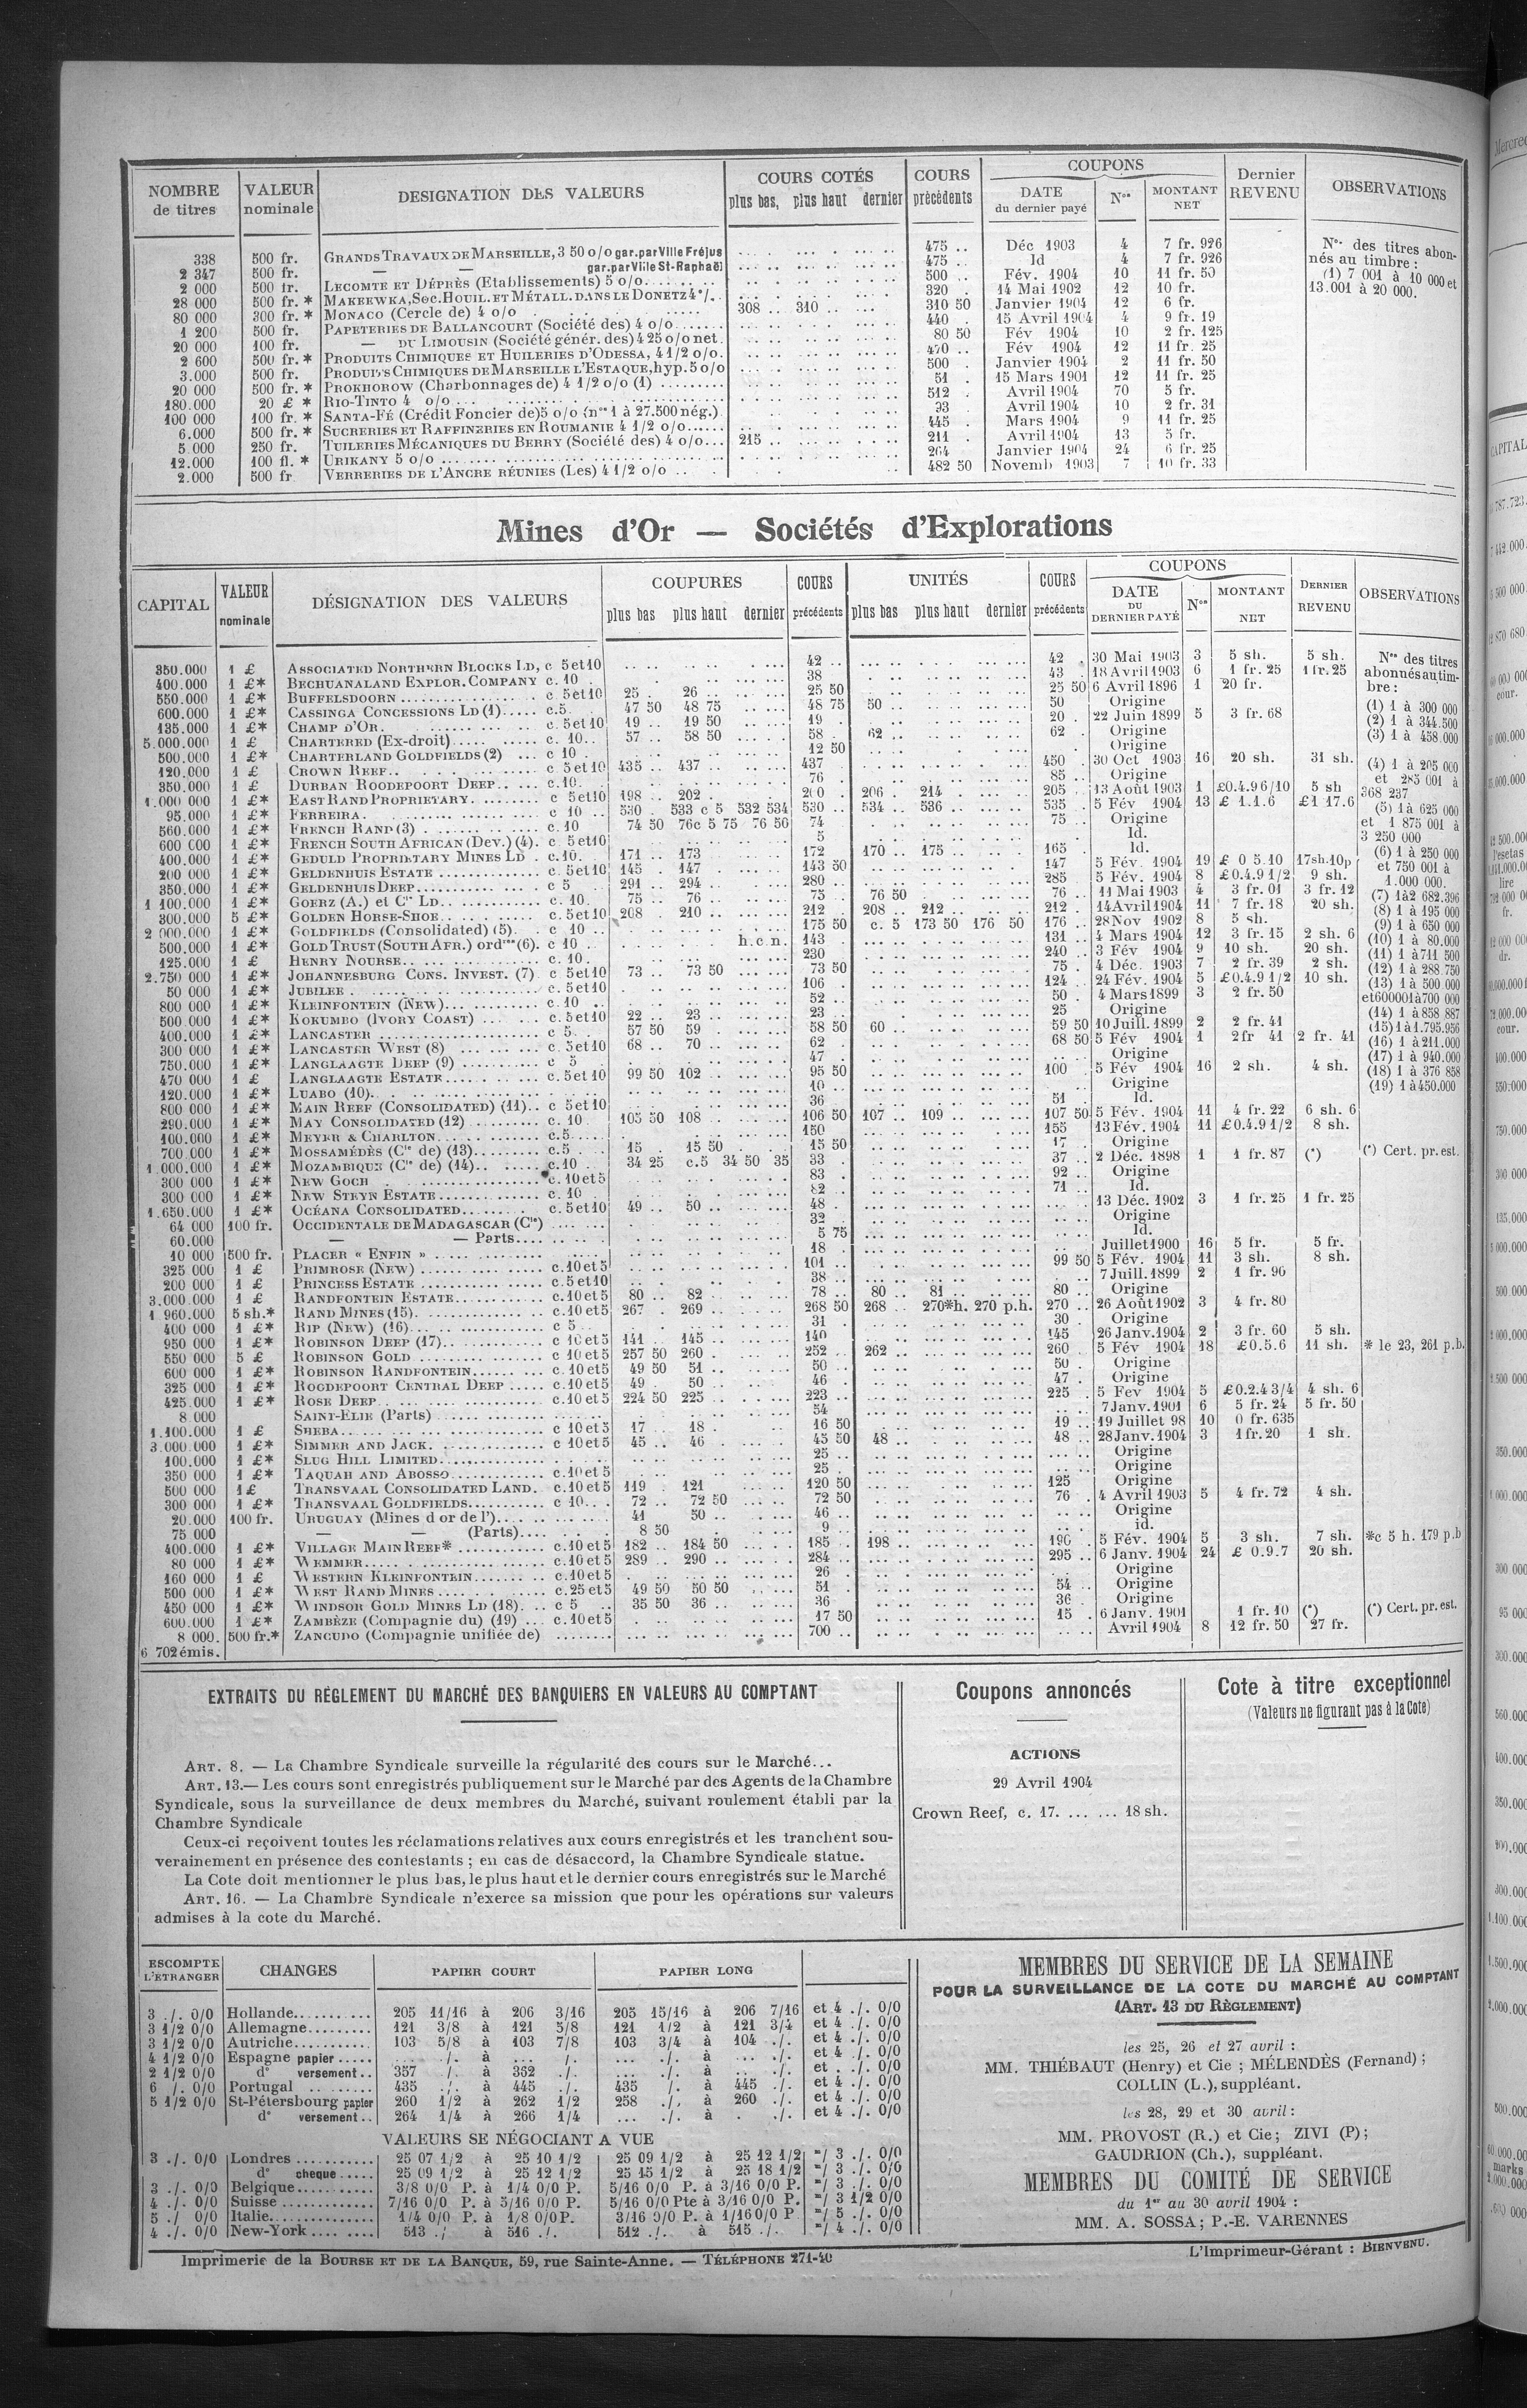 NOMBRE de titres | VALEUR nominale | DESIGNATION DES VALEURS | COURS COTÉS plus bas, plus haut dernier | COURS précédents | COUPONS DATE du dernier payé | Nos | MONTANT NET | Dernier REVENU | OBSERVATIONS
338 | 500 fr. | GRANDS TRAVAUX DE MARSEILLE, 3 50 o/o gar. par Ville Fréjus | 475 .. | Déc 1903 | 4 | 7 fr. 926
2 347 | 500 fr. | — — gar. par Ville St-Raphaël | 475 .. | Id | 4 | 7 fr. 926
2 000 | 500 fr. | LECOMTE ET DÉPRÈS (Etablissements) 5 o/o | 500 .. | Fév. 1904 | 10 | 11 fr. 50
28 000 | 500 fr. * | MAKEEWKA, Soc. HOUIL. ET MÉTALL. DANS LE DONETZ 4 °/. | 320 . | 14 Mai 1902 | 12 | 10 fr.
80 000 | 300 fr. * | MONACO (Cercle de) 4 o/o | 308 .. 310 .. | 310 50 | Janvier 1904 | 12 | 6 fr.
1 200 | 500 fr. | PAPETERIES DE BALLANCOURT (Société des) 4 o/o | 440 . | 15 Avril 1904 | 4 | 9 fr. 19
20 000 | 100 fr. | — DU LIMOUSIN (Société génér. des) 4 25 o/o net. | 80 50 | Fév 1904 | 10 | 2 fr. 125
2 600 | 500 fr. * | PRODUITS CHIMIQUES ET HUILERIES D'ODESSA, 4 1/2 o/o. | 470 .. | Fév 1904 | 12 | 11 fr. 25
3.000 | 500 fr. | PRODUITS CHIMIQUES DE MARSEILLE L'ESTAQUE, hyp. 5 o/o | 500 . | Janvier 1904 | 2 | 11 fr. 50
20 000 | 500 fr. * | PROKHOROW (Charbonnages de) 4 1/2 o/o (1) | 51 . | 15 Mars 1901 | 12 | 11 fr. 25
180.000 | 20 £ * | RIO-TINTO 4 o/o | 512 . | Avril 1904 | 70 | 5 fr.
100 000 | 100 fr. * | SANTA-FÉ (Crédit Foncier de) 5 o/o (nos 1 à 27.500 nég.) | 93 . | Avril 1904 | 10 | 2 fr. 31
6.000 | 500 fr. * | SUCRERIES ET RAFFINERIES EN ROUMANIE 4 1/2 o/o | 445 . | Mars 1904 | 9 | 11 fr. 25
5 000 | 250 fr. | TUILERIES MÉCANIQUES DU BERRY (Société des) 4 o/o | 215 .. | 211 . | Avril 1904 | 13 | 5 fr.
12.000 | 100 fl. * | URIKANY 5 o/o | 264 | Janvier 1904 | 24 | 6 fr. 25
2.000 | 500 fr | VERRERIES DE L'ANCRE RÉUNIES (Les) 4 1/2 o/o | 482 50 | Novemb 1903 | 7 | 10 fr. 33
Nos des titres abonnés au timbre :
(1) 7 001 à 10 000 et
13.001 à 20 000.
Mines d'Or — Sociétés d'Explorations
CAPITAL | VALEUR nominale | DÉSIGNATION DES VALEURS | COUPURES plus bas plus haut dernier | COURS précédents | UNITÉS plus bas plus haut dernier | COURS précédents | COUPONS DATE DU DERNIER PAYÉ | Nos | MONTANT NET | DERNIER REVENU | OBSERVATIONS
350.000 | 1 £ | ASSOCIATED NORTHERN BLOCKS LD, c 5 et 10 | 42 .. | 42 . | 30 Mai 1903 | 3 | 5 sh. | 5 sh.
400.000 | 1 £* | BECHUANALAND EXPLOR. COMPANY c. 10 . | 38 | 43 . | 18 Avril 1903 | 6 | 1 fr. 25 | 1 fr. 25
550.000 | 1 £* | BUFFELSDOORN c. 5 et 10 | 25 . 26 .. | 25 50 | 25 50 | 6 Avril 1896 | 1 | 20 fr.
600.000 | 1 £* | CASSINGA CONCESSIONS LD (1) c.5 | 47 50 48 75 | 48 75 | 50 .. | 50 | Origine
135.000 | 1 £* | CHAMP D'OR c. 5 et 10 | 19 .. 19 50 | 19 . | 20 . | 22 Juin 1899 | 5 | 3 fr. 68
5.000.000 | 1 £ | CHARTERED (Ex-droit) c. 10 | 57 .. 58 50 | 58 . | 62 .. | 62 . | Origine
500.000 | 1 £* | CHARTERLAND GOLDFIELDS (2) c 10 | 12 50 | Origine
120.000 | 1 £ | CROWN REEF c 5 et 10 | 435 .. 437 .. | 437 | 450 . | 30 Oct 1903 | 16 | 20 sh. | 31 sh.
350.000 | 1 £ | DURBAN ROODEPOORT DEEP c. 10 | 76 . | 85 .. | Origine
1.000 000 | 1 £* | EAST RAND PROPRIETARY c 5 et 10 | 198 .. 202 . | 200 . | 206 . 214 . | 205 .. | 13 Août 1903 | 1 | £0.4.9 6/10 | 5 sh
95.000 | 1 £* | FERREIRA c 10 | 530 . 533 c 5 532 534 | 530 .. | 534 .. 536 .. | 535 . | 5 Fév 1904 | 13 | £ 1.1.6 | £1 17.6
560.000 | 1 £* | FRENCH RAND (3) c. 10 | 74 50 76 c 5 75 76 50 | 74 | 75 .. | Origine
600 000 | 1 £* | FRENCH SOUTH AFRICAN (Dev.) (4). c 5 et 10 | 5 | Id.
400.000 | 1 £* | GEDULD PROPRIETARY MINES LD . c. 10. | 171 .. 173 | 172 | 170 .. 175 .. | 165 . | Id.
200 000 | 1 £* | GELDENHUIS ESTATE c. 5 et 10 | 145 . 147 . | 143 50 | 147 | 5 Fév. 1904 | 19 | £ 0 5.10 | 17sh.10p
350.000 | 1 £* | GELDENHUIS DEEP c 5 | 291 .. 294 .. | 280 .. | 285 | 5 Fév. 1904 | 8 | £0.4.9 1/2 | 9 sh.
1 100.000 | 1 £* | GOERZ (A.) et Cie LD c. 10. | 75 .. 76 | 75 . | 76 50 | 76 .. | 11 Mai 1903 | 4 | 3 fr. 01 | 3 fr. 12
300.000 | 5 £* | GOLDEN HORSE-SHOE c. 5 et 10 | 208 . 210 .. | 212 . | 208 .. 212 .. | 212 . | 14 Avril 1904 | 11 | 7 fr. 18 | 20 sh.
2 000.000 | 1 £* | GOLDFIELDS (Consolidated) (5). c 10 .. | 175 50 | c. 5 173 50 176 50 | 176 .. | 28 Nov 1902 | 8 | 5 sh.
500.000 | 1 £* | GOLD TRUST (SOUTH AFR.) ordres (6). c 10 . | h.c n. | 143 | 131 .. | 4 Mars 1904 | 12 | 3 fr. 15 | 2 sh. 6
125.000 | 1 £ | HENRY NOURSE c. 10. | 230 | 240 .. | 3 Fév 1904 | 9 | 10 sh. | 20 sh.
2.750 000 | 1 £* | JOHANNESBURG CONS. INVEST. (7) c 5 et 10 | 73 .. 73 50 | 73 50 | 75 . | 4 Déc. 1903 | 7 | 2 fr. 39 | 2 sh.
50 000 | 1 £* | JUBILEE c. 5 et 10 | 106 . | 124 .. | 24 Fév. 1904 | 5 | £0.4.9 1/2 | 10 sh.
800 000 | 1 £* | KLEINFONTEIN (NEW) c. 10 .. | 52 .. | 50 . | 4 Mars 1899 | 3 | 2 fr. 50
500.000 | 1 £* | KOKUMBO (IVORY COAST) c. 5 et 10 | 22 .. 23 .. | 23 | 25 | Origine
400.000 | 1 £* | LANCASTER c 5 | 57 50 59 . | 58 50 | 60 .. | 59 50 | 10 Juill. 1899 | 2 | 2 fr. 41
300 000 | 1 £* | LANCASTER WEST (8) c. 5 et 10 | 68 .. 70 .. | 62 . | 68 50 | 5 Fév 1904 | 1 | 2fr 41 | 2 fr. 41
750.000 | 1 £* | LANGLAAGTE DEEP (9) c 5 | 47 . | Origine
470 000 | 1 £ | LANGLAAGTE ESTATE c. 5 et 10 | 99 50 102 . | 95 50 | 100 . | 5 Fév 1904 | 16 | 2 sh. | 4 sh.
120.000 | 1 £* | LUABO (10) | 10 .. | Origine
800 000 | 1 £* | MAIN REEF (CONSOLIDATED) (11) c 5 et 10 | 36 | 51 . | Id.
290.000 | 1 £* | MAY CONSOLIDATED (12) c. 10 | 105 50 108 . | 106 50 | 107 .. 109 .. | 107 50 | 5 Fév. 1904 | 11 | 4 fr. 22 | 6 sh. 6
100.000 | 1 £* | MEYER & CHARLTON c.5 | 150 | 155 | 13 Fév. 1904 | 11 | £0.4.9 1/2 | 8 sh.
700 000 | 1 £* | MOSSAMÉDÈS (Cie de) (13) c.5 | 15 . 15 50 | 15 50 | 17 . | Origine
1 000.000 | 1 £* | MOZAMBIQUE (Cie de) (14) c.10 | 34 25 c.5 34 50 35 | 33 . | 37 .. | 2 Déc. 1898 | 1 | 1 fr. 87 | (*) | (*) Cert. pr. est.
300 000 | 1 £* | NEW GOCH c. 10 et 5 | 83 . | 92 .. | Origine
300 000 | 1 £* | NEW STEYN ESTATE c. 10 | 82 .. | 71 .. | Id.
1.650.000 | 1 £* | OCÉANA CONSOLIDATED c. 5 et 10 | 49 .. 50 .. | 48 .. | 13 Déc. 1902 | 3 | 1 fr. 25 | 1 fr. 25
64 000 | 100 fr. | OCCIDENTALE DE MADAGASCAR (Cie) | 32 . | Origine
60.000 | — — Parts | 5 75 | Id.
10 000 | 500 fr. | PLACER « ENFIN » | 18 . | Juillet 1900 | 16 | 5 fr. | 5 fr.
325 000 | 1 £ | PRIMROSE (NEW) c. 10 et 5 | 101 .. | 99 50 | 5 Fév. 1904 | 11 | 3 sh. | 8 sh.
200 000 | 1 £ | PRINCESS ESTATE c. 5 et 10 | 38 .. | 7 Juill. 1899 | 2 | 1 fr. 90
3.000.000 | 1 £ | RANDFONTEIN ESTATE c. 10 et 5 | 80 .. 82 .. | 78 .. | 80 .. 81 .. | 80 .. | Origine
1 960.000 | 5 sh.* | RAND MINES (15) c. 10 et 5 | 267 . 269 .. | 268 50 | 268 .. 270*h. 270 p.h. | 270 .. | 26 Août 1902 | 3 | 4 fr. 80
400 000 | 1 £* | RIP (NEW) (16) c 5 | 31 . | 30 . | Origine
950 000 | 1 £* | ROBINSON DEEP (17) c 10 et 5 | 141 .. 145 .. | 140 | 145 | 26 Janv. 1904 | 2 | 3 fr. 60 | 5 sh.
550 000 | 5 £ | ROBINSON GOLD c 10 et 5 | 257 50 260 . | 252 .. | 262 .. | 260 . | 5 Fév 1904 | 18 | £0.5.6 | 11 sh. | * le 23, 261 p.b.
600 000 | 1 £* | ROBINSON RANDFONTEIN c. 10 et 5 | 49 50 51 .. | 50 .. | 50 . | Origine
325 000 | 1 £* | ROODEPOORT CENTRAL DEEP c. 10 et 5 | 49 . 50 .. | 46 . | 47 . | Origine
425.000 | 1 £* | ROSE DEEP c. 10 et 5 | 224 50 225 .. | 223 .. | 225 . | 5 Fev 1904 | 5 | £0.2.4 3/4 | 4 sh. 6
8 000 | SAINT-ELIE (Parts) | 54 | 7 Janv. 1901 | 6 | 5 fr. 24 | 5 fr. 50
1.100.000 | 1 £ | SHEBA c 10 et 5 | 17 .. 18 . | 16 50 | 19 .. | 19 Juillet 98 | 10 | 0 fr. 635
3.000.000 | 1 £* | SIMMER AND JACK. c 10 et 5 | 45 .. 46 . | 45 50 | 48 .. | 48 .. | 28 Janv. 1904 | 3 | 1 fr. 20 | 1 sh.
100.000 | 1 £* | SLUG HILL LIMITED | 25 .. | Origine
350 000 | 1 £* | TAQUAH AND ABOSSO c. 10 et 5 | 25 . | Origine
500 000 | 1 £ | TRANSVAAL CONSOLIDATED LAND. c. 10 et 5 | 119 . 121 | 120 50 | 125 | Origine
300 000 | 1 £* | TRANSVAAL GOLDFIELDS c 10 | 72 .. 72 50 | 72 50 | 76 . | 4 Avril 1903 | 5 | 4 fr. 72 | 4 sh.
20.000 | 100 fr. | URUGUAY (Mines d or de l') | 41 50 .. | 46 .. | Origine
75 000 | — — (Parts) | 8 50 | 9 .. | id.
400.000 | 1 £* | VILLAGE MAIN REEF* c. 10 et 5 | 182 .. 184 50 | 185 .. | 198 .. | 190 . | 5 Fév. 1904 | 5 | 3 sh. | 7 sh. | *c 5 h. 179 p.b
80 000 | 1 £* | WEMMER c. 10 et 5 | 289 .. 290 .. | 284 .. | 295 .. | 6 Janv. 1904 | 24 | £ 0.9.7 | 20 sh.
160 000 | 1 £ | WESTERN KLEINFONTEIN c. 10 et 5 | 26 . | Origine
500 000 | 1 £* | WEST RAND MINES c. 25 et 5 | 49 50 50 50 | 51 . | 54 .. | Origine
450 000 | 1 £* | WINDSOR GOLD MINES LD (18). c 5 | 35 50 36 .. | 36 | 36 . | Origine
600.000 | 1 £* | ZAMBÈZE (Compagnie du) (19) c. 10 et 5 | 17 50 | 15 . | 6 Janv. 1901 | 1 fr. 10 | (*) | (*) Cert. pr. est.
8 000. | 500 fr.* | ZANCUDO (Compagnie unifiée de) | 700 .. | Avril 1904 | 8 | 12 fr. 50 | 27 fr.
6 702 émis.
Nos des titres
abonnés au timbre :
(1) 1 à 300 000
(2) 1 à 344.500
(3) 1 à 458.000
(4) 1 à 205 000
et 285 001 à
368 237
(5) 1 à 625 000
et 1 875 001 à
3 250 000
(6) 1 à 250 000
et 750 001 à
1.000 000.
(7) 1 à 2 682.396
(8) 1 à 195 000
(9) 1 à 650 000
(10) 1 à 80.000
(11) 1 à 711 500
(12) 1 à 288 750
(13) 1 à 500.000
et 600001 à 700 000
(14) 1 à 858 887
(15) 1 à 1.795.956
(16) 1 à 211.000
(17) 1 à 940.000
(18) 1 à 376 858
(19) 1 à 450.000
EXTRAITS DU RÉGLEMENT DU MARCHÉ DES BANQUIERS EN VALEURS AU COMPTANT
ART. 8. — La Chambre Syndicale surveille la régularité des cours sur le Marché...
ART. 13.— Les cours sont enregistrés publiquement sur le Marché par des Agents de la Chambre
Syndicale, sous la surveillance de deux membres du Marché, suivant roulement établi par la
Chambre Syndicale
Ceux-ci reçoivent toutes les réclamations relatives aux cours enregistrés et les tranchent sou-
verainement en présence des contestants ; en cas de désaccord, la Chambre Syndicale statue.
La Cote doit mentionner le plus bas, le plus haut et le dernier cours enregistrés sur le Marché
ART. 16. — La Chambre Syndicale n'exerce sa mission que pour les opérations sur valeurs
admises à la cote du Marché.
Coupons annoncés
ACTIONS
29 Avril 1904
Crown Reef, c. 17. ... ... 18 sh.
Cote à titre exceptionnel
(Valeurs ne figurant pas à la Cote)
ESCOMPTE L'ÉTRANGER | CHANGES | PAPIER COURT | PAPIER LONG
3 ./. 0/0 | Hollande | 205 11/16 à 206 3/16 | 205 15/16 à 206 7/16 | et 4 ./. 0/0
3 1/2 0/0 | Allemagne | 121 3/8 à 121 5/8 | 121 1/2 à 121 3/4 | et 4 ./. 0/0
3 1/2 0/0 | Autriche | 103 5/8 à 103 7/8 | 103 3/4 à 104 ./. | et 4 ./. 0/0
4 1/2 0/0 | Espagne papier | ... ./. à ... /. | ... ./. à ... ./. | et 4 ./. 0/0
2 1/2 0/0 | d° versement | 357 ./. à 362 ./. | ... ./. à ... ./. | et . ./. 0/0
6 ./. 0/0 | Portugal | 435 ./. à 445 ./. | 435 /. à 445 ./. | et 4 ./. 0/0
5 1/2 0/0 | St-Pétersbourg papier | 260 1/2 à 262 1/2 | 258 ./. à 260 ./. | et 4 ./. 0/0
d° versement | 264 1/4 à 266 1/4 | ... ./. à . ./. | et 4 ./. 0/0
VALEURS SE NÉGOCIANT A VUE
3 ./. 0/0 | Londres | 25 07 1/2 à 25 10 1/2 | 25 09 1/2 à 25 12 1/2 | =/ 3 ./. 0/0
d° cheque | 25 09 1/2 à 25 12 1/2 | 25 15 1/2 à 25 18 1/2 | =/ 3 ./. 0/0
3 ./. 0/0 | Belgique | 3/8 0/0 P. à 1/4 0/0 P. | 5/16 0/0 P. à 3/16 0/0 P. | =/ 3 ./. 0/0
4 ./. 0/0 | Suisse | 7/16 0/0 P. à 5/16 0/0 P. | 5/16 0/0 Pte à 3/16 0/0 P. | =/ 3 1/2 0/0
5 ./. 0/0 | Italie | 1/4 0/0 P. à 1/8 0/0 P. | 3/16 0/0 P. à 1/16 0/0 P | =/ 5 ./. 0/0
4 ./. 0/0 | New-York | 513 ./ à 516 ./. | 512 ./. à 515 ./. | =/ 4 ./. 0/0
MEMBRES DU SERVICE DE LA SEMAINE
POUR LA SURVEILLANCE DE LA COTE DU MARCHÉ AU COMPTANT
(ART. 13 DU RÈGLEMENT)
les 25, 26 et 27 avril :
MM. THIÉBAUT (Henry) et Cie ; MÉLENDÈS (Fernand) ;
COLLIN (L.), suppléant.
les 28, 29 et 30 avril :
MM. PROVOST (R.) et Cie ; ZIVI (P) ;
GAUDRION (Ch.), suppléant.
MEMBRES DU COMITÉ DE SERVICE
du 1er au 30 avril 1904 :
MM. A. SOSSA ; P.-E. VARENNES
Imprimerie de la BOURSE ET DE LA BANQUE, 59, rue Sainte-Anne. — TÉLÉPHONE 271-40
L'Imprimeur-Gérant : BIENVENU.